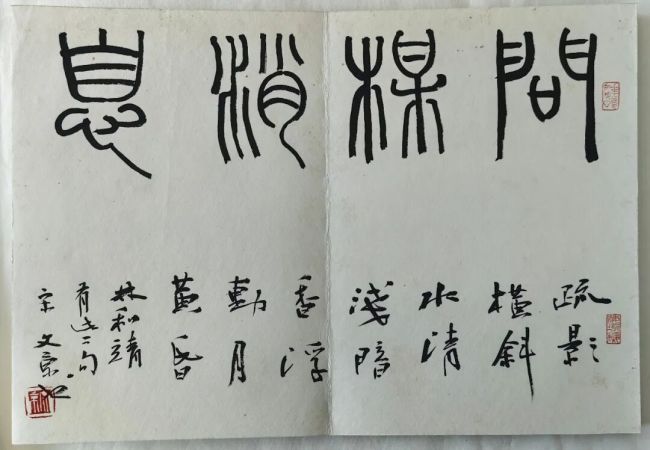 問楳消息
疏影
横斜
水清
淺暗
香浮
動月
黄昏
林和靖
有此二句
宋文京